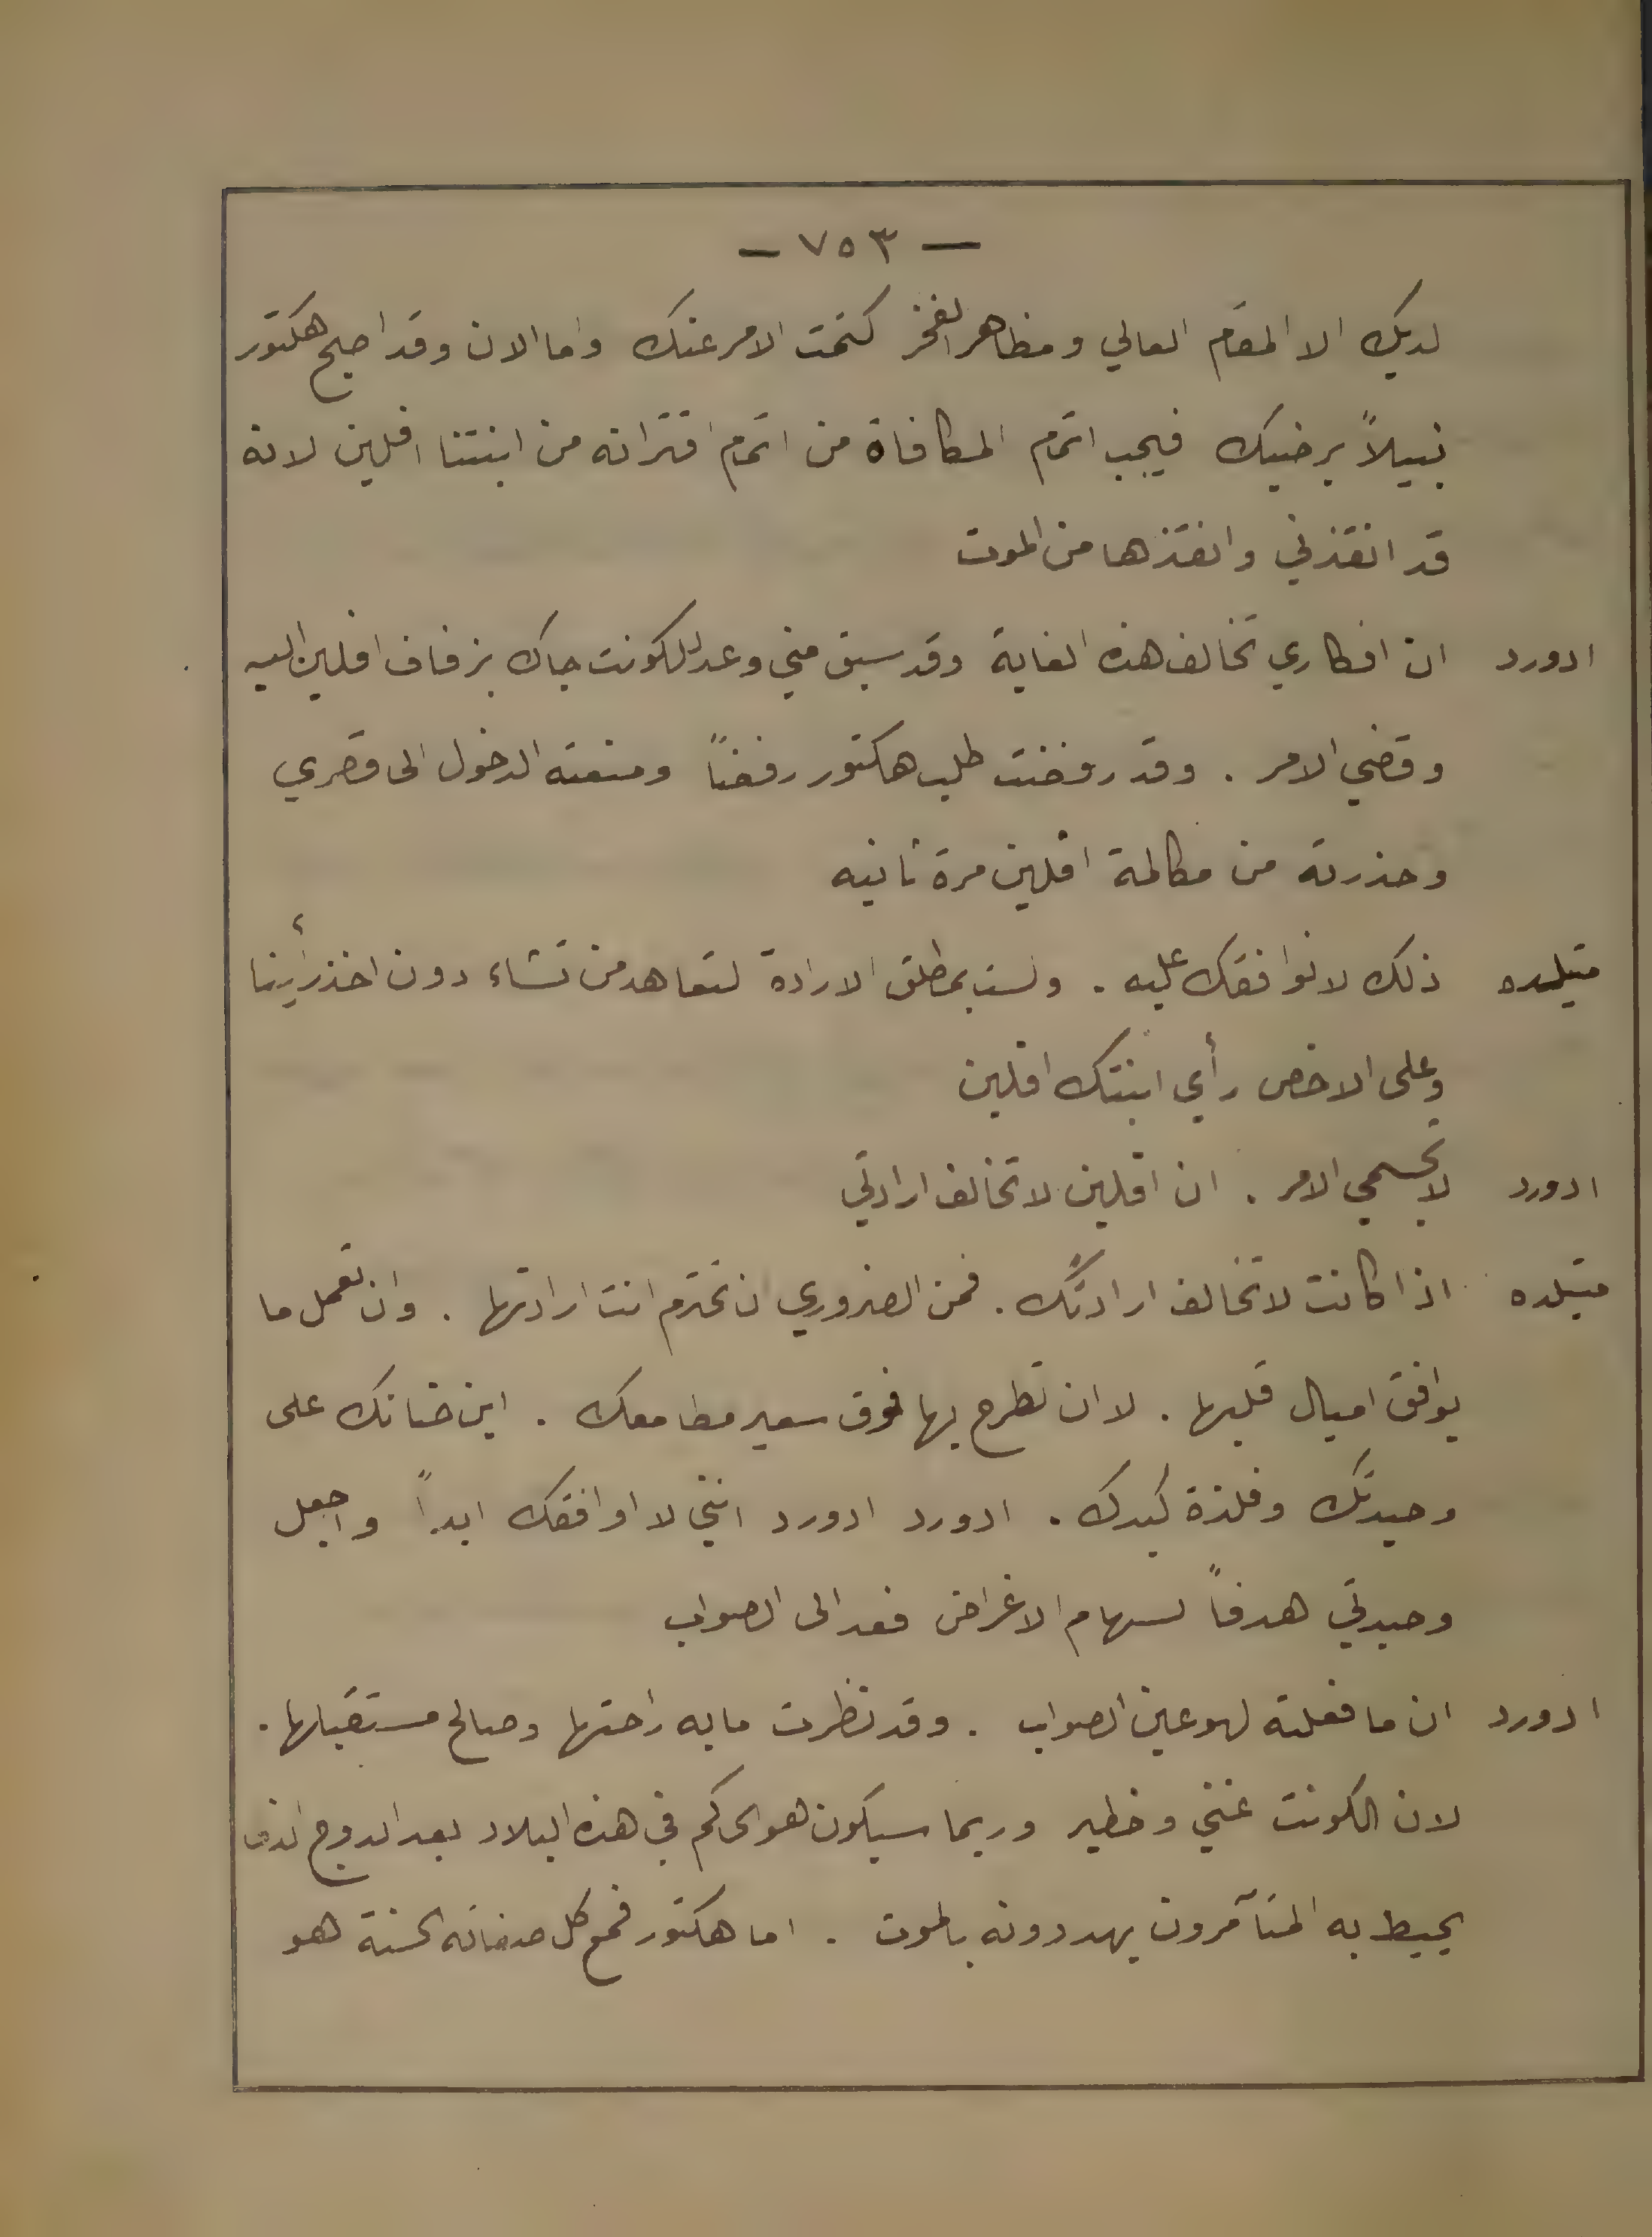 — ٧٥٣ —
لديك الا المقام العالي ومظاهر الفخر كتمت الامر عنك واما الان وقد اصبح هكتور
نبيلاً يرضيك فيجب اتمام المكافاة من اتمام اقترانه من ابنتنا افلين لانه
قد انقذني وانقذها من الموت
ادورد ان افكاري تخالف هذه الغاية وقد سبق مني وعد للكونت جاك بزفاف افلين اليه
وقضي الامر . وقد رفضت طلب هكتور رفضاً ومنعته الدخول الى قصري
وحذرته من مكالمة افلين مرة ثانيه
متيلده ذلك لا نوافقك عليه . ولست بمطلق الارادة لتعاهد من تشاء دون اخذ رأينا
وعلى الاخص رأي ابنتك افلين
ادورد لا تجسمي الامر . ان افلين لا تخالف ارادتي
متيلده اذا كانت لا تخالف ارادتك . فمن الضروري ان تحترم انت ارادتها . وان تعمل ما
يوافق اميال قلبها . لا ان تطرح بها فوق سعير مطامعك . اين حنانك على
وحيدتك وفلذة كبدك . ادورد ادورد انني لا اوافقك ابداً واجعل
وحيدتي هدفاً لسهام الاغراض فعد الى الصواب
ادورد ان ما فعلته لهو عين الصواب . وقد نظرت ما به راحتها وصالح مستقبلها .
لان الكونت غني وخطير وربما سيكون هو الحاكم في هذه البلاد بعد الدوج الذي
يحيط به المتآمرون يهددونه بالموت . اما هكتور فمع كل صفاته الحسنة هو